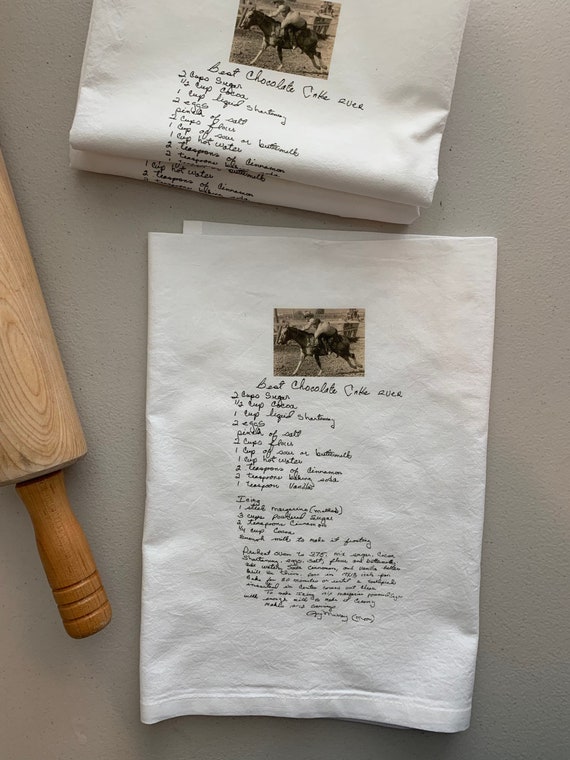 Best Chocolate Cake Ever
2 Cups Sugar
1/2 Cup Cocoa
1 Cup liquid Shortening
2 eggs
pinch of salt
2 Cups flour
1 Cup of sour or buttermilk
1 Cup hot water
2 teaspoons of Cinnamon
2 teaspoons
1 Cup hot water
2 teaspoons of Cinnamon
Best Chocolate Cake Ever
2 Cups Sugar
1/2 Cup Cocoa
1 Cup liquid Shortening
2 eggs
pinch of salt
2 Cups flour
1 Cup of sour or buttermilk
1 Cup hot water
2 teaspoons of Cinnamon
2 teaspoons baking soda
1 teaspoon Vanilla
Icing
1 stick margarine (melted)
3 cups powdered Sugar
2 teaspoons Cinnamon
1/4 cup Cocoa
Enough milk to make it frosting
Preheat oven to 375. mix sugar, Cocoa
Shortening, eggs, salt, flour and buttermilk
add water, soda cinnamon, and vanilla
Bake for 30 minutes or until a toothpick
inserted in center comes out clean
To make Icing mix margarine
with enough milk to make it Icing
(mom)